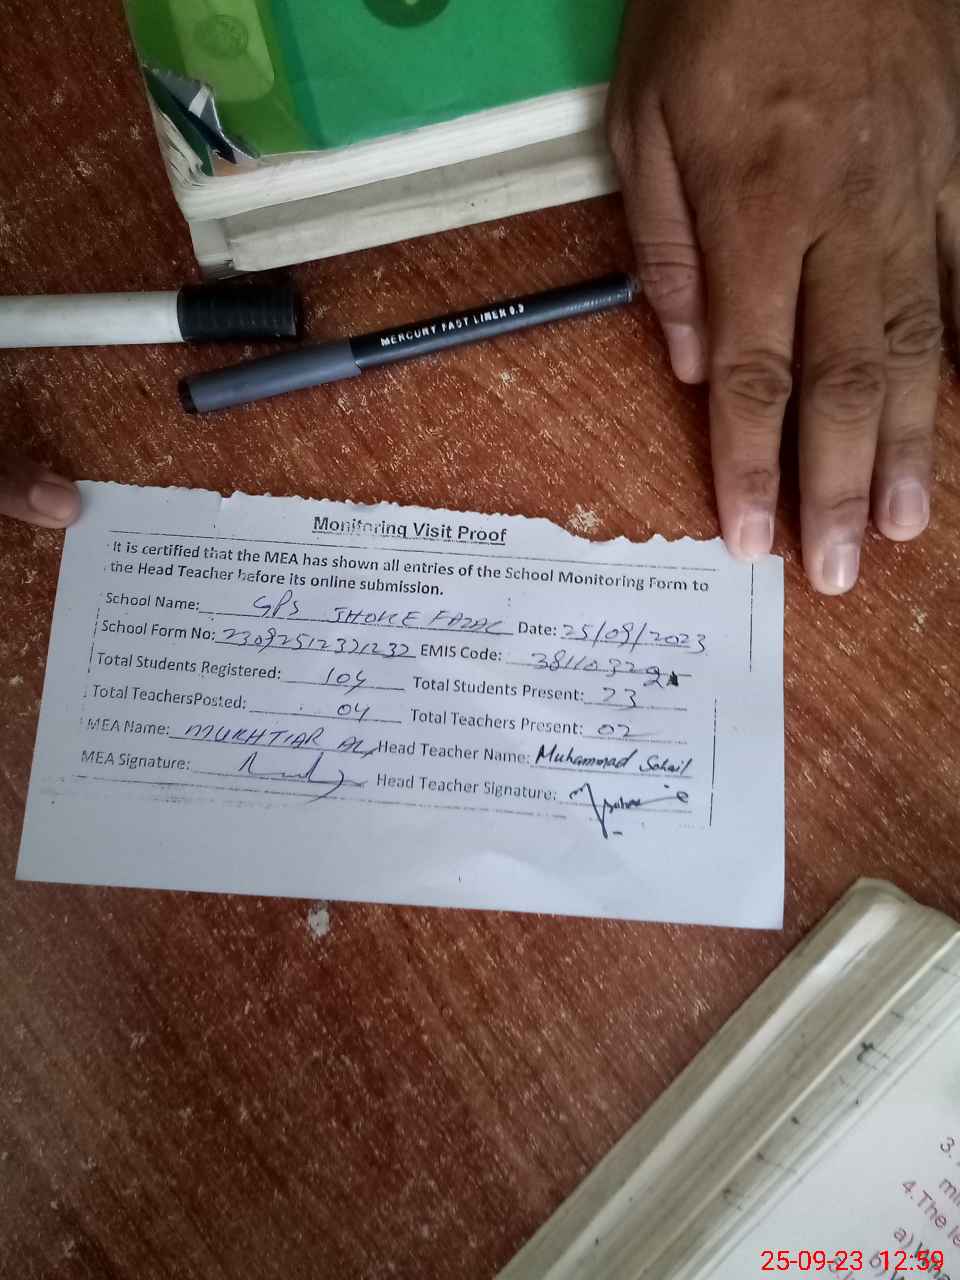 MERCURY FAST LINER 0.3
Monitoring Visit Proof
It is certified that the MEA has shown all entries of the School Monitoring Form to
the Head Teacher before its online submission.
School Name: GPS JHOKE FAZAL Date: 25/09/2023
School Form No: 23092512321232 EMIS Code:
Total Students Registered: 104 Total Students Present: 23
Total TeachersPosted: 04 Total Teachers Present: 02
MEA Name: MUKHTIAR ALI Head Teacher Name: Muhammad Sohail
MEA Signature: Head Teacher Signature:
3.
4. The
a)
b)
25-09-23 12:59